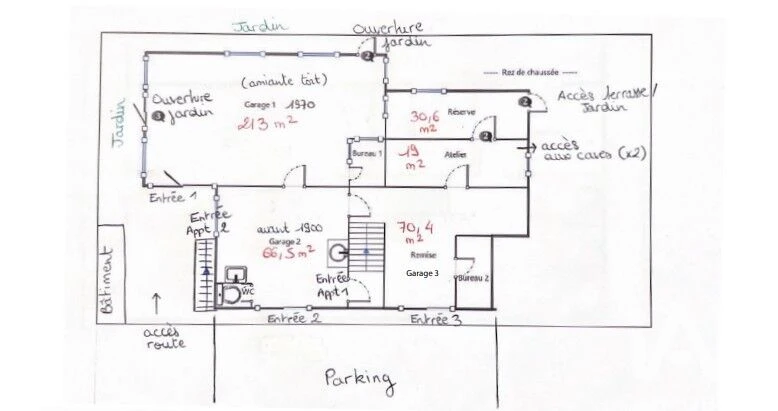 Jardin
Ouverture
Jardin
Rez de chaussée
(amiante toit)
Garage 1 1970
213 m²
Ouverture
Jardin
Jardin
Réserve
30,6
m²
Accès terrasse /
Jardin
Bureau 1
19
m²
Atelier
accès
aux caves (x2)
Entrée 1
Entrée
Appt 2
avant 1900
Garage 2
66,5 m²
70,4
m²
Remise
Garage 3
Bureau 2
Entrée
Appt 1
WC
Bâtiment
accès
route
Entrée 2
Entrée 3
Parking